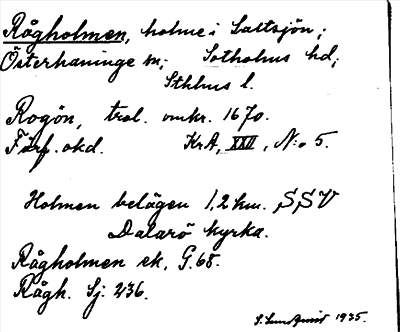 Rågholmen, holme i Saltsjön;
Österhaninge sn; Sotholms hd;
Sthlms l.
Rogön, trol. omkr. 1670.
Förf. okd. KrA, XXII, N:o 5.
Holmen belägen 1,2 km. SSV
Dalarö kyrka.
Rågholmen ek, G.68.
Rågh. Sj. 236.
S. Lundquist 1935.